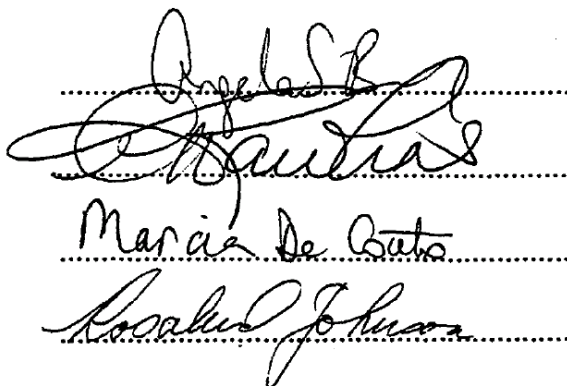 Angela S B
Marcia De Couto
Rosalind Johnson